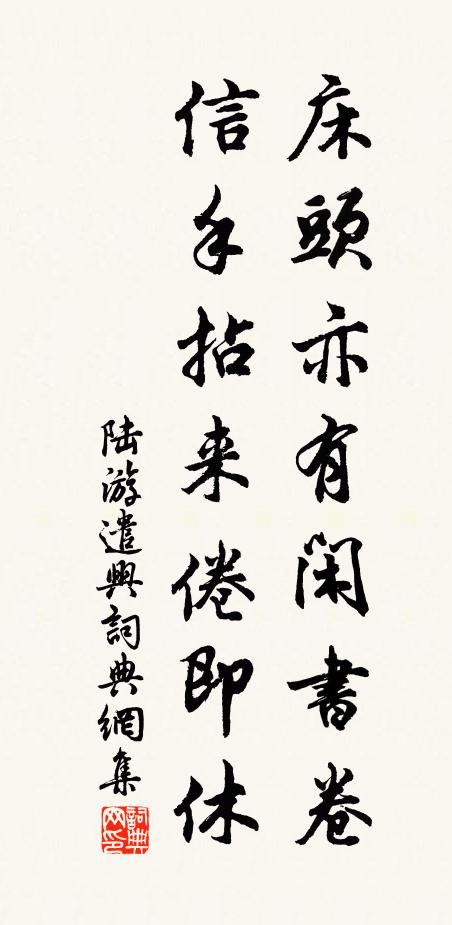 床頭亦有閑書卷
信手拈来倦即休
陆游遣興詞典網集
詞典网印